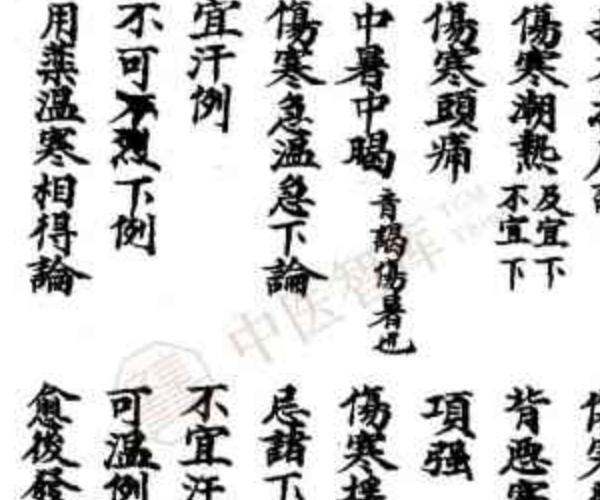 傷寒潮熱 及宜下不宜下
背惡寒
傷寒頭痛
項强
中暑中暍 音謁傷暑也
傷寒
傷寒急温急下論
忌諸下
宜汗例
不宜汗
不可
烈下例
可温例
用藥温寒相得論
愈後發
中医智库